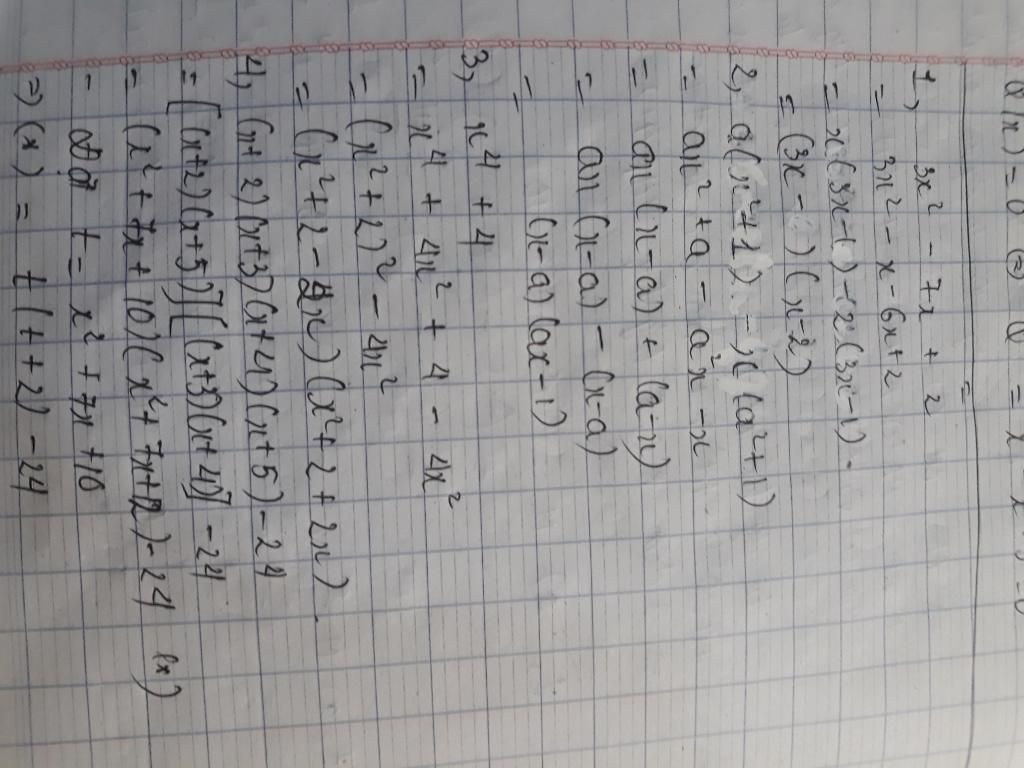 1, 3x² - 7x + 2 =
= 3x² - x - 6x + 2
= x(3x-1) - 2(3x-1).
= (3x - ) (x-2)
2, a(x²+1) - x(a²+1)
= ax² + a - a²x - x
= ax(x-a) + (a-x)
= ax(x-a) - (x-a)
= (x-a)(ax-1)
3, x⁴ + 4
= x⁴ + 4x² + 4 - 4x²
= (x²+2)² - 4x²
= (x²+2-2x)(x²+2+2x).
4, (x+2)(x+3)(x+4)(x+5) - 24
= [(x+2)(x+5)][(x+3)(x+4)] - 24
= (x²+7x+10)(x²+7x+12) - 24 (x)
- Đặt t = x² + 7x + 10
=> (x) = t(t+2) - 24